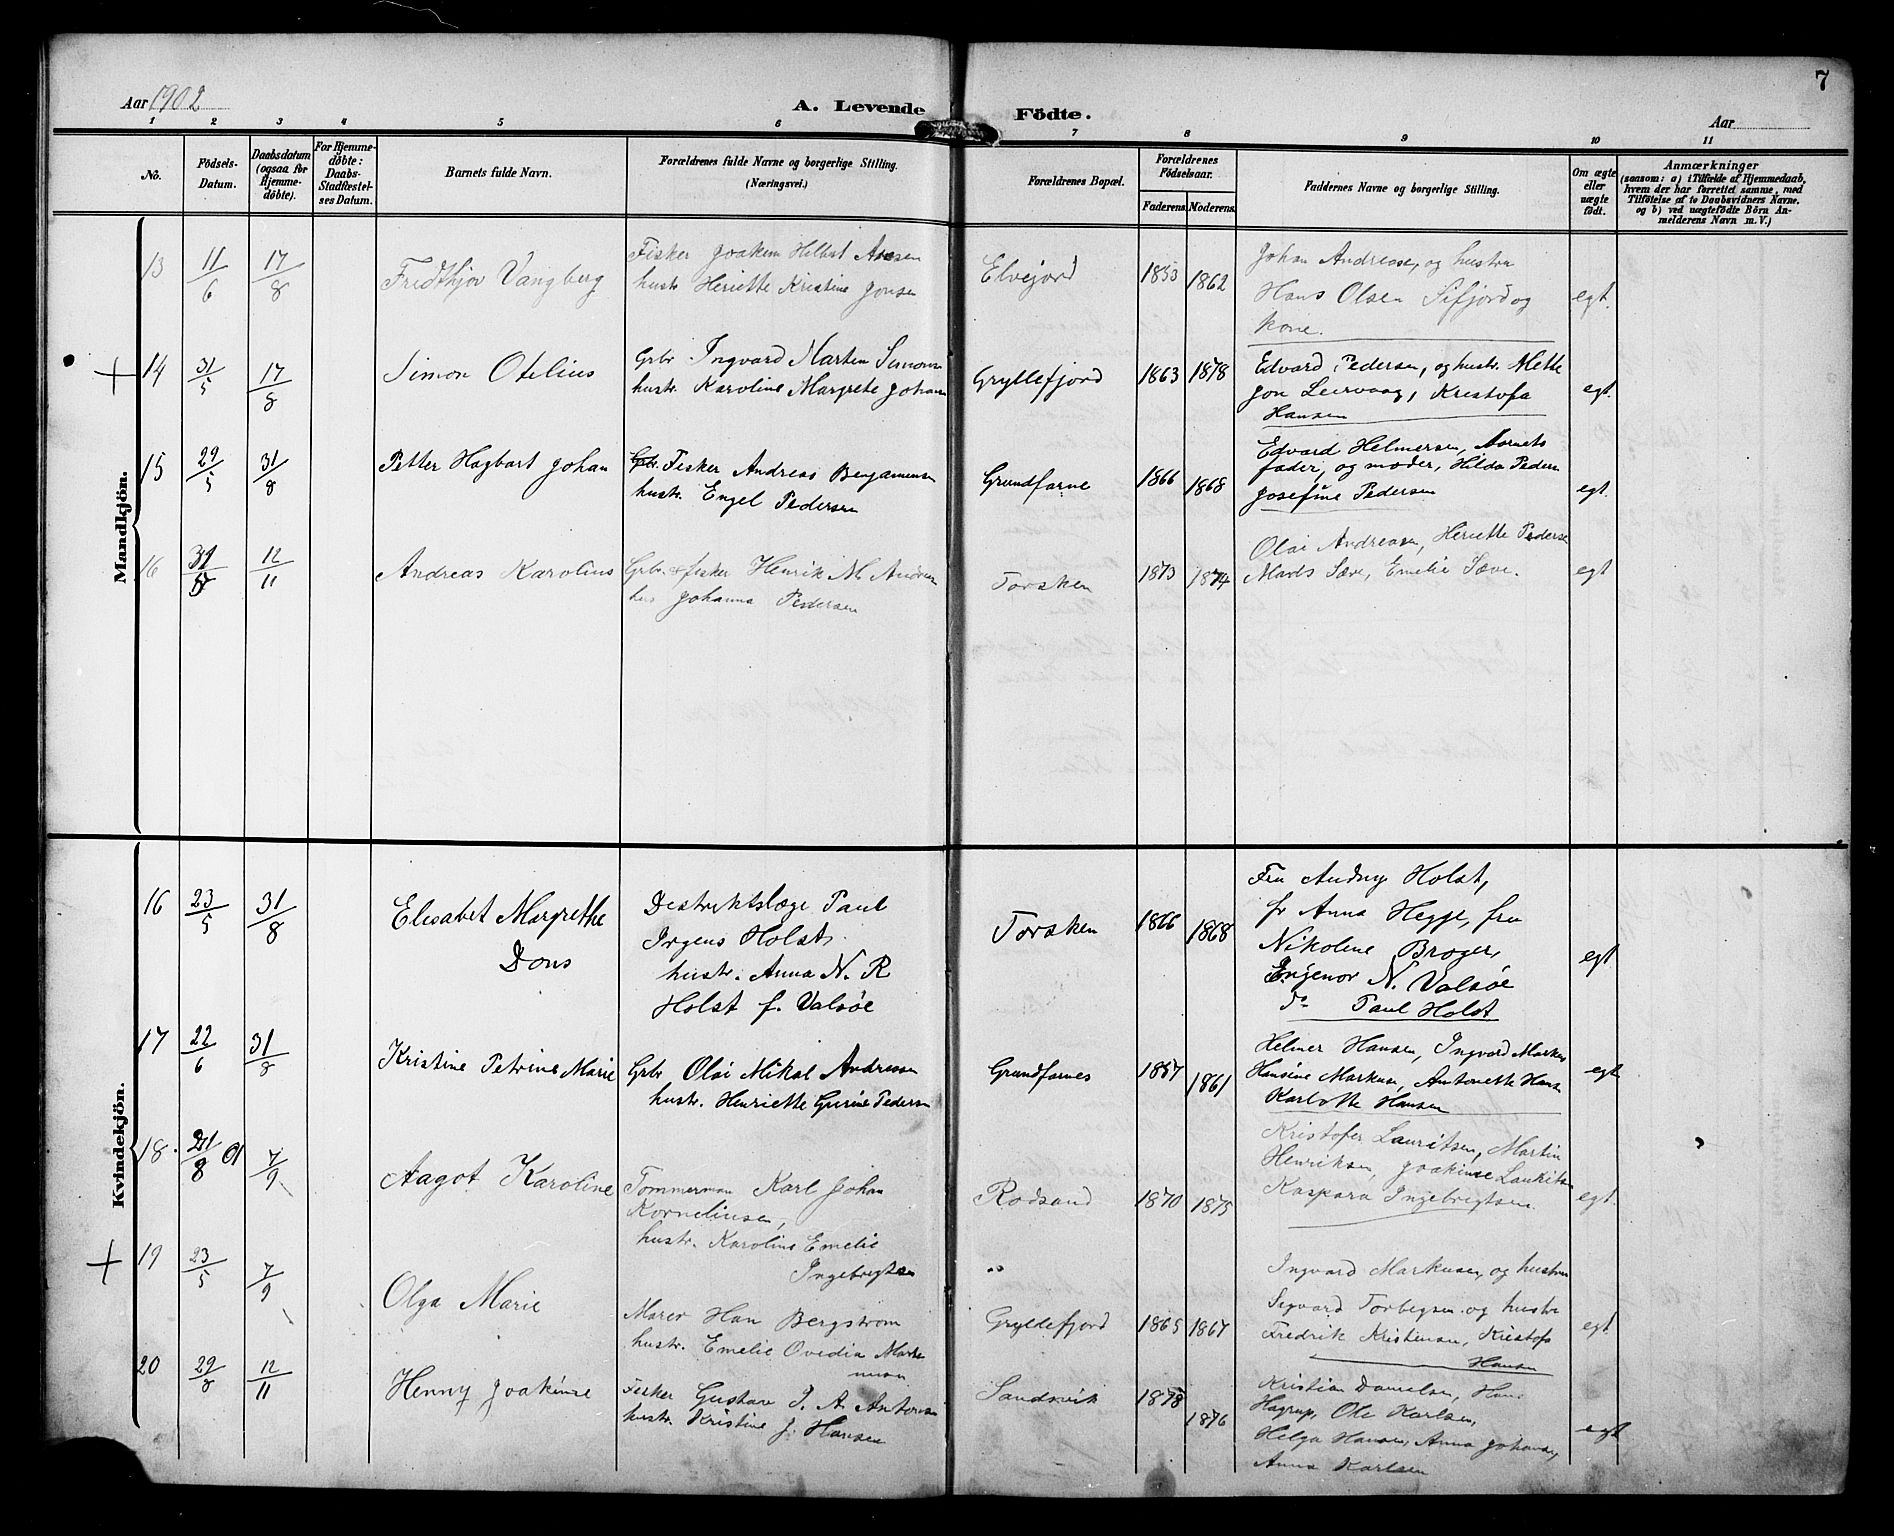 7
Aar 1902
A. Levende Födte.
Aar
1 2 3 4 5 6 7 8 9 10 11
No.
Födsels-Datum.
Daabsdatum (ogsaa for Hjemmedöbte).
For Hjemmedøbte: Daabs-Stadfæstelses Datum.
Barnets fulde Navn.
Forældrenes fulde Navne og borgerlige Stilling.
(Næringsvei.)
Forældrenes Bopæl.
Forældrenes Födselsaar.
Faderens. Moderens.
Faddernes Navne og borgerlige Stilling.
Om ægte eller uægte födt.
Anmærkninger
(saasom: a) i Tilfælde af Hjemmedaab, hvem der har forrettet samme, med Tilföielse af to Daabsvidners Navne. og b) ved uægtefödte Börn Anmelderens Navn m. V.)
Mandkjön.
13 11/6 17/8 Fredthjov Vangberg
Fisker Joakim Hilbert
hustr Heriette Kristine Jonsen
Elvejord 1853 1862
Johan Andrease, og hustru
Hans Olsen Sifjord og
kone.
egt.
+ 14 31/5 17/8 Simon Otelius
Grbr Ingvard Marten Simons
hustr. Karoline Margrete Johans
Gryllefjord 1863 1878
Edvard Pedersen, og hustr. Mette
Jon Leirvaag, Kristofa
Hansen
egt.
15 29/5 31/8 Petter Hagbart Johan
Grbr. Fisker Andreas Benjamensen
hustr. Engel Pedersen
Grundfarne 1866 1868
Edvard Helmersen, barnets
fader, og moder, Hilda Peders
Josefine Pedersen
egt.
16 12/11 Andreas Karolius
Grbr. & fisker Henrik M. Andreas
hus Johanna Pedersen
Torsken 1873 1874
Olai Andreasen, Heriette Pederse
Save, Emelie Save.
egt
Kvindekjön.
16 23/5 31/8 Elesabet Margrethe
Dons
Destriktslæge Paul
Irgens Holst.
hustr. Anna N. R
Holst f. Valsöe
Torsken 1866 1868
Fru Holst,
fr Anna Hegge, fru
Nikoline Broger,
N. Valsöe
do Paul Holst
egt
17 22/6 31/8 Kristine Petrine Marie
Grbr Olai Mikal Andreasen
hustr. Henriette Gurine Peders
Grundfarnes 1857 1861
Helmer Hansen, Ingvard Markus
Hansine Markuse, Antonette Hans
Karlotte Hansen
egt
18. 21/8 7/9 Aagot Karoline
Tømmerman Karl Johan
Korneliusen,
hustr. Karoline Emelie
Ingebrigtsen
Rødsand 1870 1875
Kristofer Lauritsen, Martin
Henriksen, Joakine Lauritsen
Kaspara Ingebrigtsen.
egt.
+ 19 23/5 7/9 Olga Marie
Marer Han Bergstrøm
hustr. Emelie Ovedia
Gryldefjord 1865 1867
Ingvard Markusen, og hustru
Segvard Torbegsen og hustru
Fredrik Kristiensen, Kristofa
Hansen
egt
20 29/8 12/11 Henny Joakine
Fesker Gustav I. A. Antons
hustr. Kristine J. Hansen
Sandsvik 1878 1876
Kristian Danielsen, Hans
Hagrup, Ole Karlsen,
Helga Hansen, Anna Johansen,
Anna Karlsen
egt